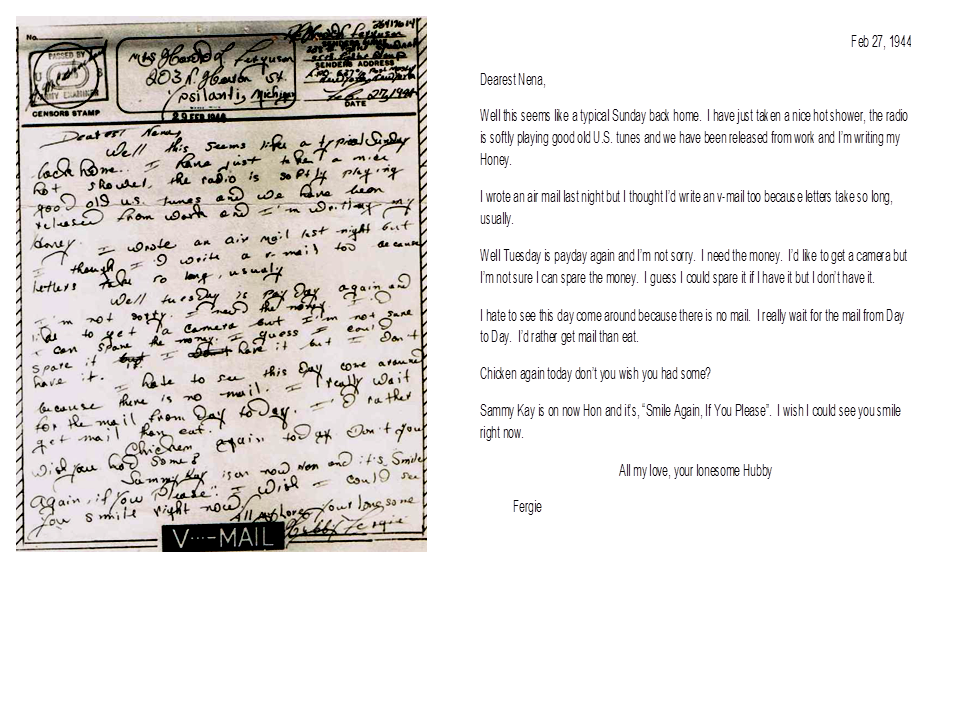 No.
PASSED BY
U S
ARMY EXAMINER
CENSORS STAMP
Mrs Harold Ferguson
203 N. Huron St.
Ypsilanti, Michigan
SENDERS NAME
SENDERS ADDRESS
Feb 27, 1944
DATE
29 FEB 1944
Dearest Nena,
Well this seems like a typical Sunday
back home. I have just taken a nice
hot shower, the radio is softly playing
good old U.S. tunes and we have been
released from work and I'm writing my
Honey.
I wrote an air mail last night but
I though I'd write a v-mail too because
letters take so long, usually
Well tuesday is pay Day again and
I'm not sorry. I need the money. I'd
like to get a camera but I'm not sure
I can spare the money. I guess I could
spare it if I have it but I don't
have it.
I hate to see this Day come around
because there is no mail. I really wait
for the mail from Day to Day. I'd rather
get mail than eat.
Chicken again today Don't you
wish you had some?
Sammy Kay is on now Hon and it's Smile
Again, if You Please". I wish I could see
you smile right now.
All my love, your lonesome
Hubby Fergie
V···—MAIL
Feb 27, 1944
Dearest Nena,
Well this seems like a typical Sunday back home. I have just taken a nice hot shower, the radio
is softly playing good old U.S. tunes and we have been released from work and I'm writing my
Honey.
I wrote an air mail last night but I thought I'd write an v-mail too because letters take so long,
usually.
Well Tuesday is payday again and I'm not sorry. I need the money. I'd like to get a camera but
I'm not sure I can spare the money. I guess I could spare it if I have it but I don't have it.
I hate to see this day come around because there is no mail. I really wait for the mail from Day
to Day. I'd rather get mail than eat.
Chicken again today don't you wish you had some?
Sammy Kay is on now Hon and it's, "Smile Again, If You Please". I wish I could see you smile
right now.
All my love, your lonesome Hubby
Fergie